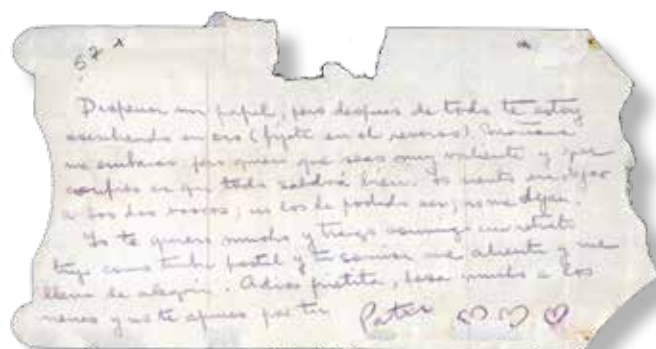 57
papel, pero despues de todo te estoy
escribiendo en oro (fijate en el reverso). Mañana
me embarco pero quiero que seas muy valiente y que
confies en que todo saldrá bien. Yo siento en
a los dos no los he podido ver; no me dejan.
Yo te quiero mucho y traigo conmigo un retrato
tuyo como tarjeta postal y tu me alienta y me
llena de alegria. Adios, besa mucho a los
nenes y no te apures por tu Pater